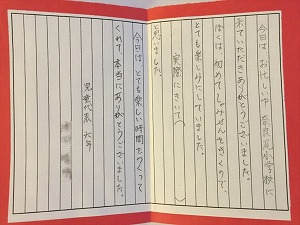 今日は、お忙しい中 奈良尾小学校に
来ていただきありがとうございました。
ぼくは、初めてしゃみせんをきくので、
とても楽しみにしていました。
実際にきいて
思いました。
今日は、とても楽しい時間をつくって
くれて、本当にありがとうございました。
児童代表 六年